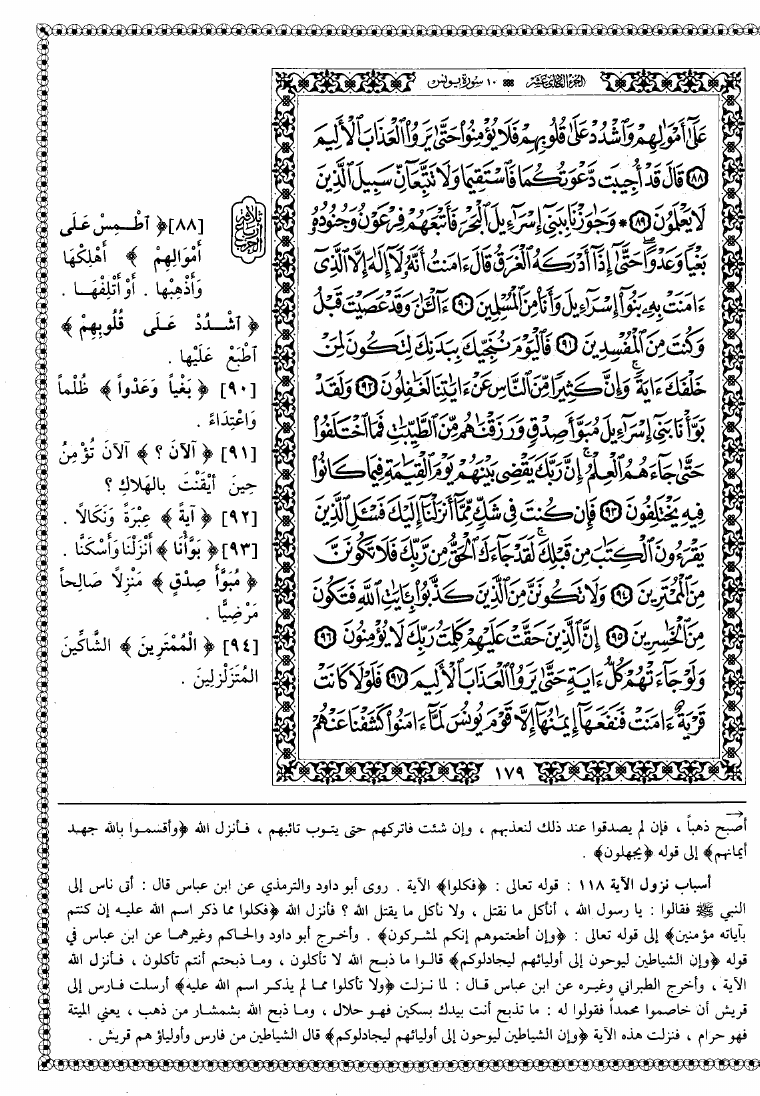 الجزء الحادي عشر ۞ ١٠ سورة يونس
عَلَىٰٓ أَمْوَٰلِهِمْ وَٱشْدُدْ عَلَىٰ قُلُوبِهِمْ فَلَا يُؤْمِنُوا۟ حَتَّىٰ يَرَوُا۟ ٱلْعَذَابَ ٱلْأَلِيمَ
٨٨ قَالَ قَدْ أُجِيبَت دَّعْوَتُكُمَا فَٱسْتَقِيمَا وَلَا تَتَّبِعَآنِّ سَبِيلَ ٱلَّذِينَ
لَا يَعْلَمُونَ ٨٩ * وَجَٰوَزْنَا بِبَنِىٓ إِسْرَٰٓءِيلَ ٱلْبَحْرَ فَأَتْبَعَهُمْ فِرْعَوْنُ وَجُنُودُهُۥ
بَغْيًا وَعَدْوًا حَتَّىٰٓ إِذَآ أَدْرَكَهُ ٱلْغَرَقُ قَالَ ءَامَنتُ أَنَّهُۥ لَآ إِلَٰهَ إِلَّا ٱلَّذِىٓ
ءَامَنَتْ بِهِۦ بَنُوٓا۟ إِسْرَٰٓءِيلَ وَأَنَا۠ مِنَ ٱلْمُسْلِمِينَ ٩٠ ءَآلْـَٰٔنَ وَقَدْ عَصَيْتَ قَبْلُ
وَكُنتَ مِنَ ٱلْمُفْسِدِينَ ٩١ فَٱلْيَوْمَ نُنَجِّيكَ بِبَدَنِكَ لِتَكُونَ لِمَنْ
خَلْفَكَ ءَايَةً ۚ وَإِنَّ كَثِيرًا مِّنَ ٱلنَّاسِ عَنْ ءَايَٰتِنَا لَغَٰفِلُونَ ٩٢ وَلَقَدْ
بَوَّأْنَا بَنِىٓ إِسْرَٰٓءِيلَ مُبَوَّأَ صِدْقٍ وَرَزَقْنَٰهُم مِّنَ ٱلطَّيِّبَٰتِ فَمَا ٱخْتَلَفُوا۟
حَتَّىٰ جَآءَهُمُ ٱلْعِلْمُ ۚ إِنَّ رَبَّكَ يَقْضِى بَيْنَهُمْ يَوْمَ ٱلْقِيَٰمَةِ فِيمَا كَانُوا۟
فِيهِ يَخْتَلِفُونَ ٩٣ فَإِن كُنتَ فِى شَكٍّ مِّمَّآ أَنزَلْنَآ إِلَيْكَ فَسْـَٔلِ ٱلَّذِينَ
يَقْرَءُونَ ٱلْكِتَٰبَ مِن قَبْلِكَ ۚ لَقَدْ جَآءَكَ ٱلْحَقُّ مِن رَّبِّكَ فَلَا تَكُونَنَّ
مِنَ ٱلْمُمْتَرِينَ ٩٤ وَلَا تَكُونَنَّ مِنَ ٱلَّذِينَ كَذَّبُوا۟ بِـَٔايَٰتِ ٱللَّهِ فَتَكُونَ
مِنَ ٱلْخَٰسِرِينَ ٩٥ إِنَّ ٱلَّذِينَ حَقَّتْ عَلَيْهِمْ كَلِمَتُ رَبِّكَ لَا يُؤْمِنُونَ ٩٦
وَلَوْ جَآءَتْهُمْ كُلُّ ءَايَةٍ حَتَّىٰ يَرَوُا۟ ٱلْعَذَابَ ٱلْأَلِيمَ ٩٧ فَلَوْلَا كَانَتْ
قَرْيَةٌ ءَامَنَتْ فَنَفَعَهَآ إِيمَٰنُهَآ إِلَّا قَوْمَ يُونُسَ لَمَّآ ءَامَنُوا۟ كَشَفْنَا عَنْهُمْ
١٧٩
ثلاثة
أرباع
الحزب
[٨٨] ﴿ ٱطْمِسْ عَلَى
أَمْوَالِهِمْ ﴾ أَهْلِكْهَا
وَأَذْهِبْها . أَوْ أَتْلِفْهَا .
﴿ ٱشْدُدْ عَلَى قُلُوبِهِمْ ﴾
ٱطْبَعْ عَلَيْها .
[٩٠] ﴿ بَغْياً وَعَدْواً ﴾ ظُلْماً
وَاعْتِدَاءً .
[٩١] ﴿ آلآنَ ؟ ﴾ آلآنَ تُؤْمِنُ
حِينَ أَيْقَنْتَ بالهَلاكِ ؟
[٩٢] ﴿ آيَةً ﴾ عِبْرَةً وَنَكَالاً .
[٩٣] ﴿ بَوَّأْنَا ﴾ أَنْزَلْنَا وَأَسْكَنَّا .
﴿ مُبَوَّأَ صِدْقٍ ﴾ مَنْزِلاً صَالِحاً
مَرْضِيًّا .
[٩٤] ﴿ الْمُمْتَرِينَ ﴾ الشَّاكِّينَ
المُتَزَلْزِلِينَ .
أصبح ذهباً ، فإن لم يصدقوا عند ذلك لنعذبهم ، وإن شئت فاتركهم حتى يتوب تائبهم ، فأنزل الله ﴿وأقسموا بالله جهد
أيمانهم﴾ إلى قوله ﴿يجهلون﴾ .
أسباب نزول الآية ١١٨ : قوله تعالى : ﴿فكلوا﴾ الآية . روى أبو داود والترمذي عن ابن عباس قال : أتى ناس إلى
النبي ﷺ فقالوا : يا رسول الله ، أنأكل ما نقتل ، ولا نأكل ما يقتل الله ؟ فأنزل الله ﴿فكلوا مما ذكر اسم الله عليه إن كنتم
بآياته مؤمنين﴾ إلى قوله تعالى : ﴿وإن أطعتموهم إنكم لمشركون﴾ . وأخرج أبو داود والحاكم وغيرهما عن ابن عباس في
قوله ﴿وإن الشياطين ليوحون إلى أوليائهم ليجادلوكم﴾ قالوا ما ذبح الله لا تأكلون ، وما ذبحتم أنتم تأكلون ، فأنزل الله
الآية ، وأخرج الطبراني وغيره عن ابن عباس قال : لما نزلت ﴿ولا تأكلوا مما لم يذكر اسم الله عليه﴾ أرسلت فارس إلى
قريش أن خاصموا محمداً فقولوا له : ما تذبح أنت بيدك بسكين فهو حلال ، وما ذبح الله بشمشار من ذهب ، يعني الميتة
فهو حرام ، فنزلت هذه الآية ﴿وإن الشياطين ليوحون إلى أوليائهم ليجادلوكم﴾ قال الشياطين من فارس وأولياؤ هم قريش .